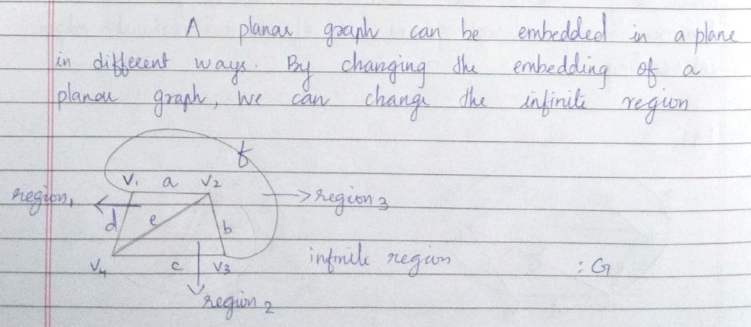 A planar graph can be embedded in a plane
in different ways. By changing the embedding of a
planar graph, we can change the infinite region
f
V1 a V2
region1 → region3
d e b
V4 c V3 infinite region : G
region 2